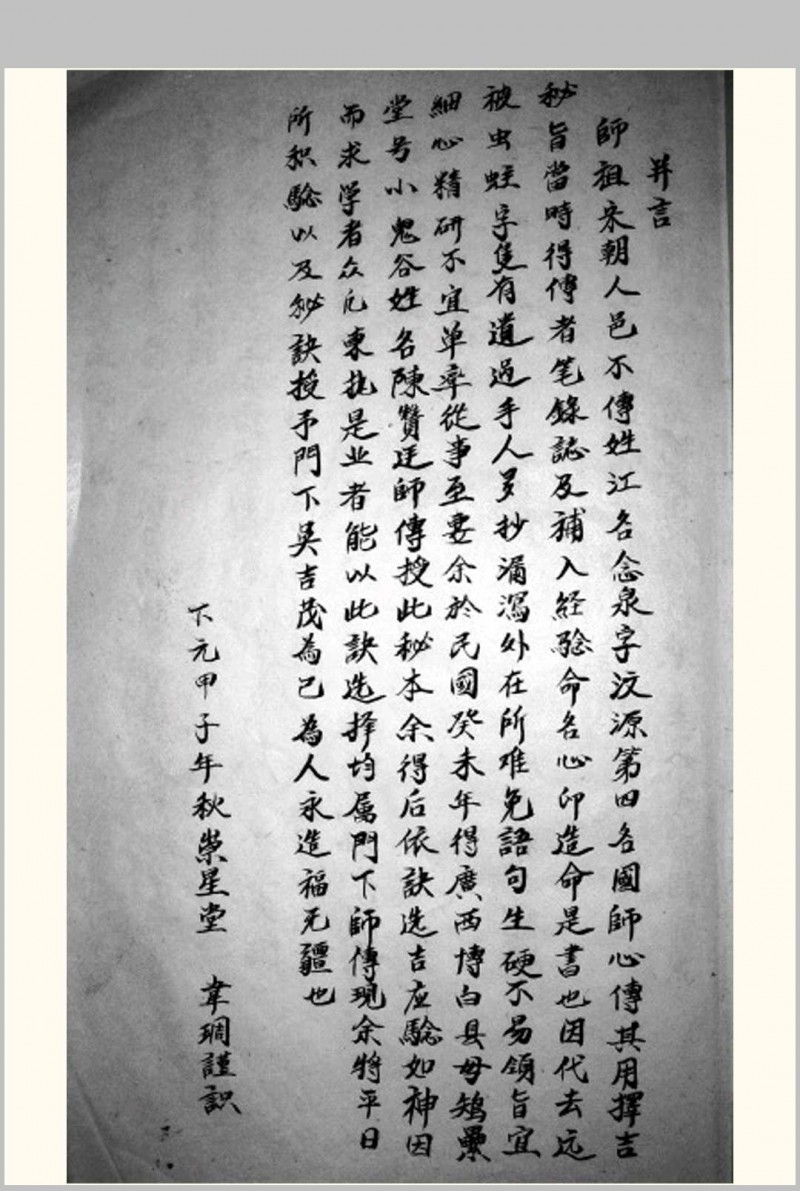 并言
師祖宋朝人邑不傳姓江名念泉字汶源第四名國師心傳其用擇吉
秘旨當時得傳者笔錄誌及補入経驗命名心印造命是書也因代去远
被虫蛀字隻有遺過手人多抄漏瀉外在所难免語句生硬不易領旨宜
細心精研不宜单率從事至要余於民國癸未年得廣西博白县母鸡
堂号小鬼谷姓名陳贊廷師傳授此秘本余得后依訣选吉应驗如神因
而求学者众凡東执是业者能以此訣选择均属門下師傳現余將平日
所积驗以及秘訣授予門下吳吉茂為己為人永造福无疆也
下元甲子年秋崇星堂 韋琱謹識